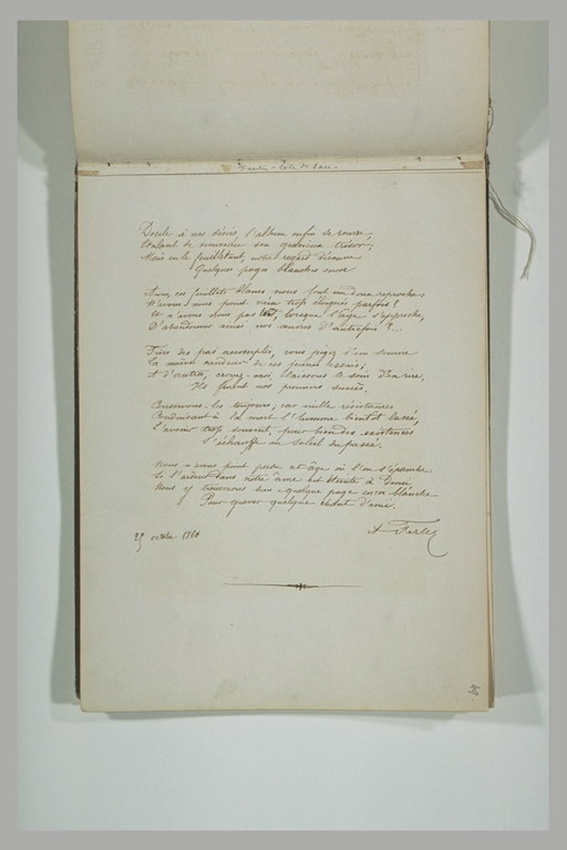 Docile à nos désirs, l'album enfin se rouvre,
Etalant de nouveau son gracieux trésor;
Mais en le feuilletant, notre regard découvre
Quelques pages blanches encor
Ainsi, ces feuillets blancs nous font un doux reproche
N'avons nous point vécu trop éloignés parfois?
Et n'avons nous pas tort, lorsque l'âge s'approche,
D'abandonner ainsi nos œuvres d'autrefois?...
Fiers des pas accomplis, vous jugez d'un sourire
La candeur de ces jeunes essais;
A d'autres, croyez-moi, laissons le soin d'en rire,
Ils furent nos premiers succès.
Conservons-les toujours; car mille résistances
Conduisant à la mort l'homme bientôt lassé,
L'avenir trop souvent, pour bien des existences
S'échauffe au soleil du passé.
Nous n'avons point perdu cet âge où l'on s'épanche
Si l'ardeur dans notre âme est éteinte à demi
Nous y trouverons bien quelque page encor blanche
Pour graver quelque chant d'ami.
25 octobre 1860
A
69